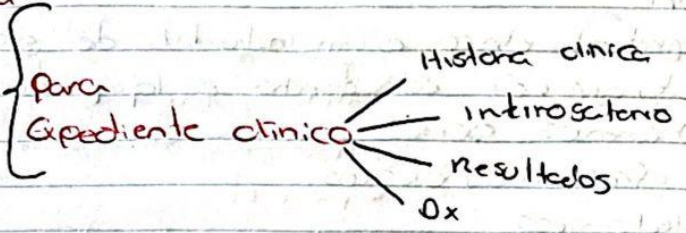 para
Expediente clínico
Historia clinica
intirosatorio
Resultados
Dx